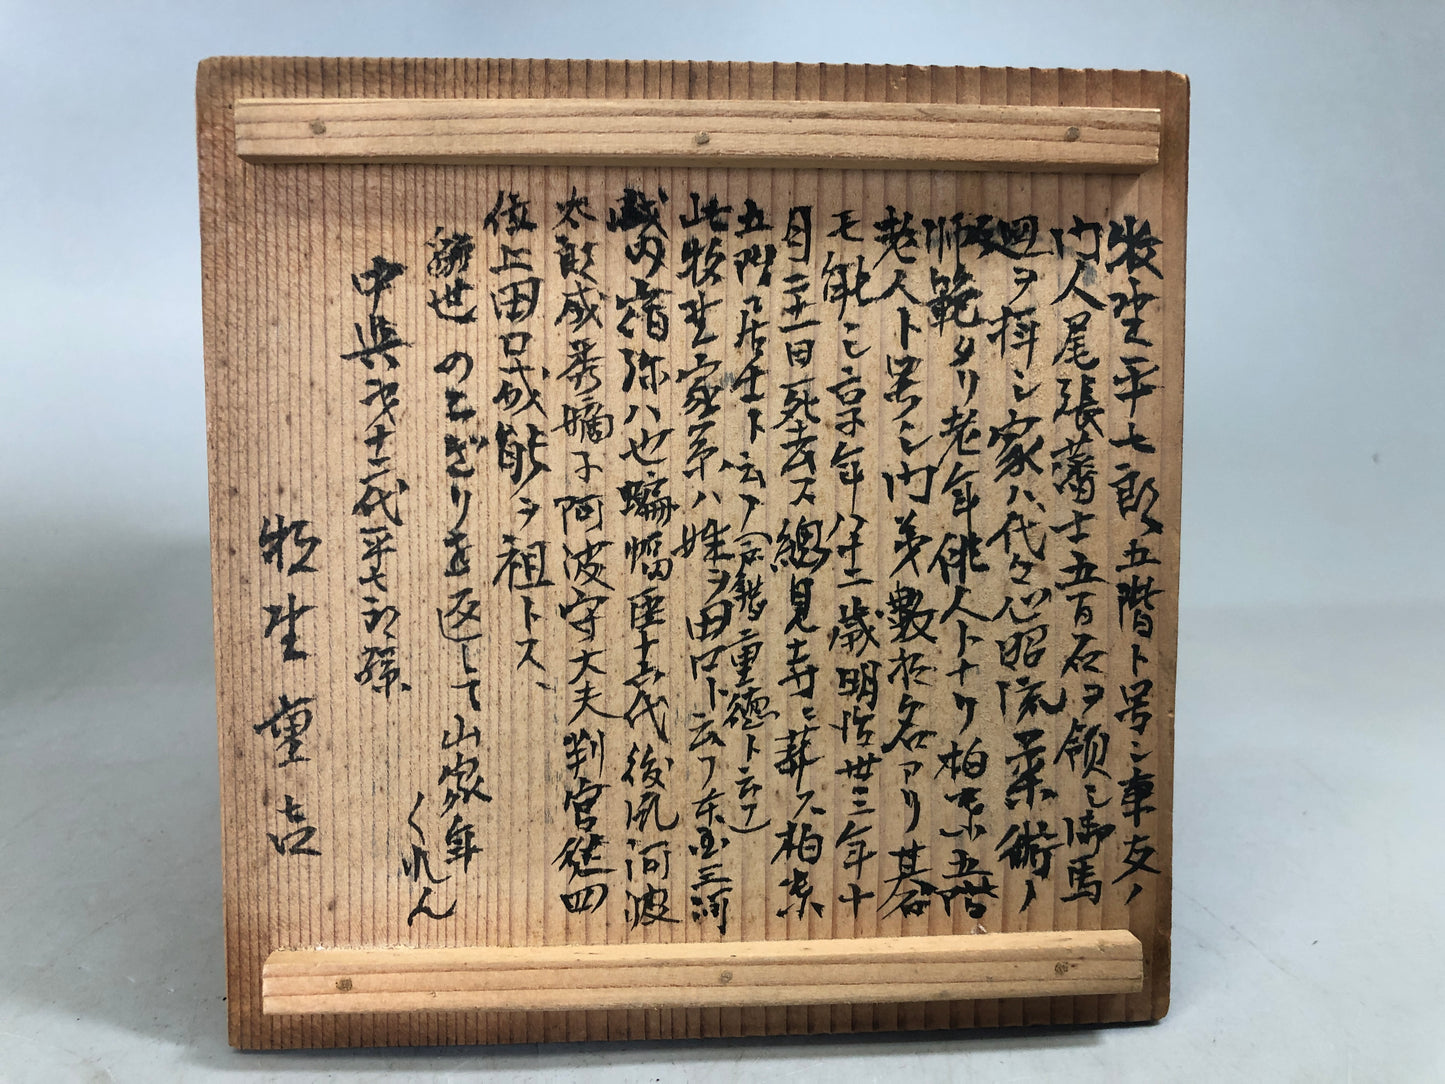 牧野平七郎五階ト号シ車友ノ
門人尾張藩士五百石ヲ領シ御馬
廻ヲ拝シ家ハ代々心昭流柔術ノ
師範タリ老年俳人トナリ柏木五階
老人ト号シ内弟数拾名アリ其右
モ能シ 子年八十二歳明治廿三年十
月二十一日死去ス總見寺ニ葬ス柏葉
五階居士ト云フ(五階重徳ト云フ)
此牧野家系ハ姓ヲ田口ト云フ本国三河
成内宿弥ハ也蝙蝠臣十六代後胤阿波
太郎成秀嫡子阿波守大夫判官従四
位上田口成能ヲ祖トス
辞世 のこぎりを返して山家年
くれん
中興才十二代平七郎孫
牧野重吉